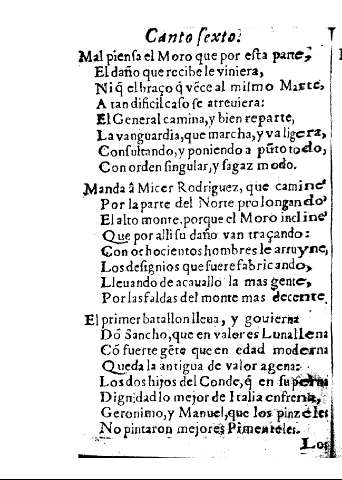 Canto sexto.
Mal piensa el Moro que por esta parte,
El daño que recibe le viniera,
Ni q̃ el braço q̃ vẽce al mismo Marte,
A tan dificil caso se atreuiera:
El General camina, y bien reparte,
La vanguardia, que marcha, y va ligera,
Consultando, y poniendo a pũto todo,
Con orden singular, y sagaz modo.
Manda â Micer Rodriguez, que camine
Por la parte del Norte prolongando
El alto monte, porque el Moro incline
Que por alli su daño van traçando:
Con ochocientos hombres le arruyne,
Los designios que fuere fabricando,
Lleuando de acauallo la mas gente,
Por las faldas del monte mas decente.
El primer batallon lleua, y gouierna
Dõ Sancho, que en valor es Luna llena
Cõ fuerte gẽte que en edad moderna
Queda la antigua de valor agena:
Los dos hijos del Conde, q̃ en superna
Dignidad lo mejor de Italia enfrena,
Geronimo, y Manuel, que los pinzeles
No pintaron mejores Pimenteles.
Los